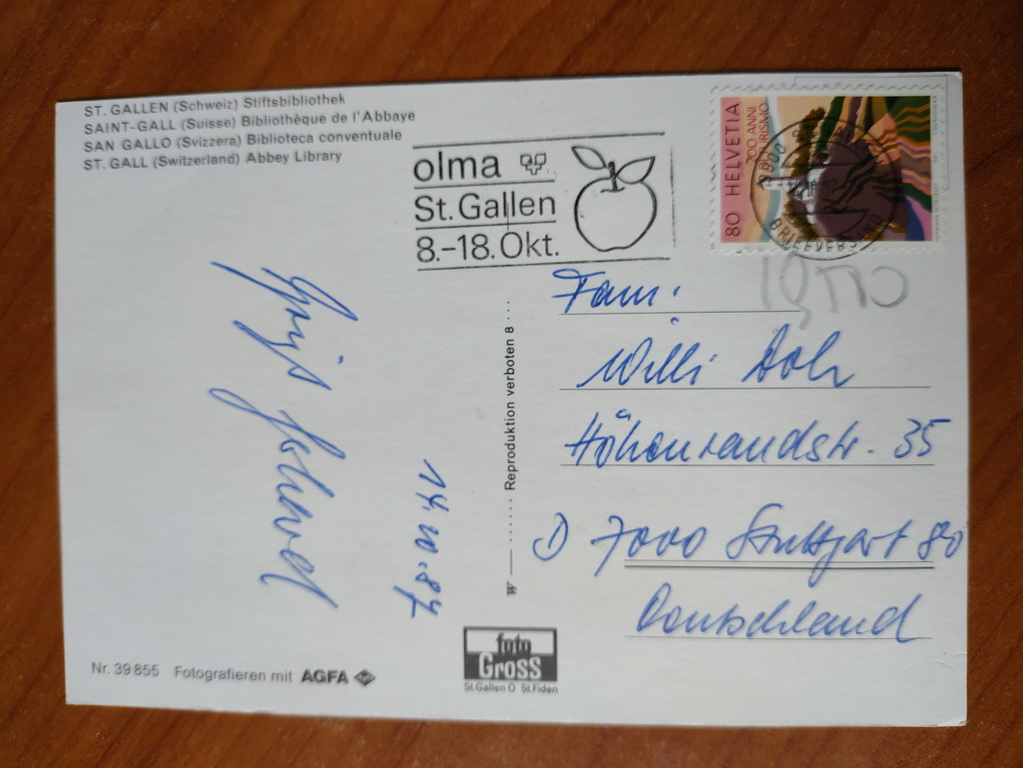 ST. GALLEN (Schweiz) Stiftsbibliothek
SAINT-GALL (Suisse) Bibliothèque de l'Abbaye
SAN GALLO (Svizzera) Biblioteca conventuale
ST. GALL (Switzerland) Abbey Library
olma
St. Gallen
8.-18. Okt.
80 HELVETIA
200 ANNI
DI TURISMO
BRIEFVERSAND
Fam.
Willi
Höhenrandstr. 35
D 7000 Stuttgart 80
Deutschland
14.10.87
W Reproduktion verboten 8
foto
GROSS
St. Gallen O St. Fiden
Nr. 39 855 Fotografieren mit AGFA